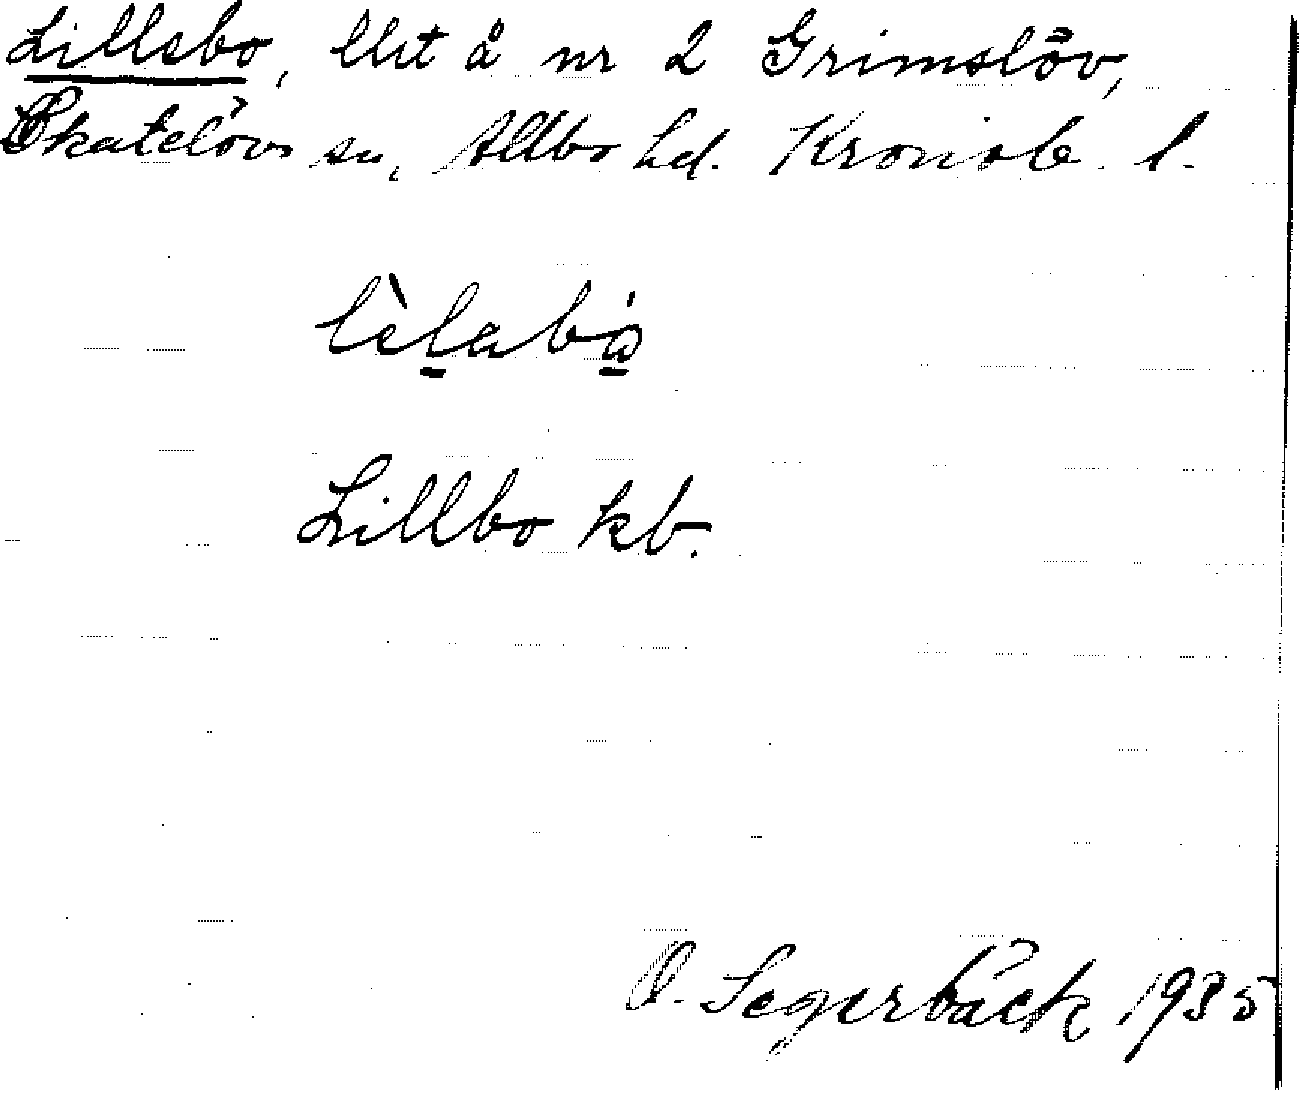 Lillebo, lht å nr 2 Grimslöv,
Skatelövs sn, Allbo hd. Kronob. l.
lèlabå
Lillbo kb.
O. Segerbäck 1935